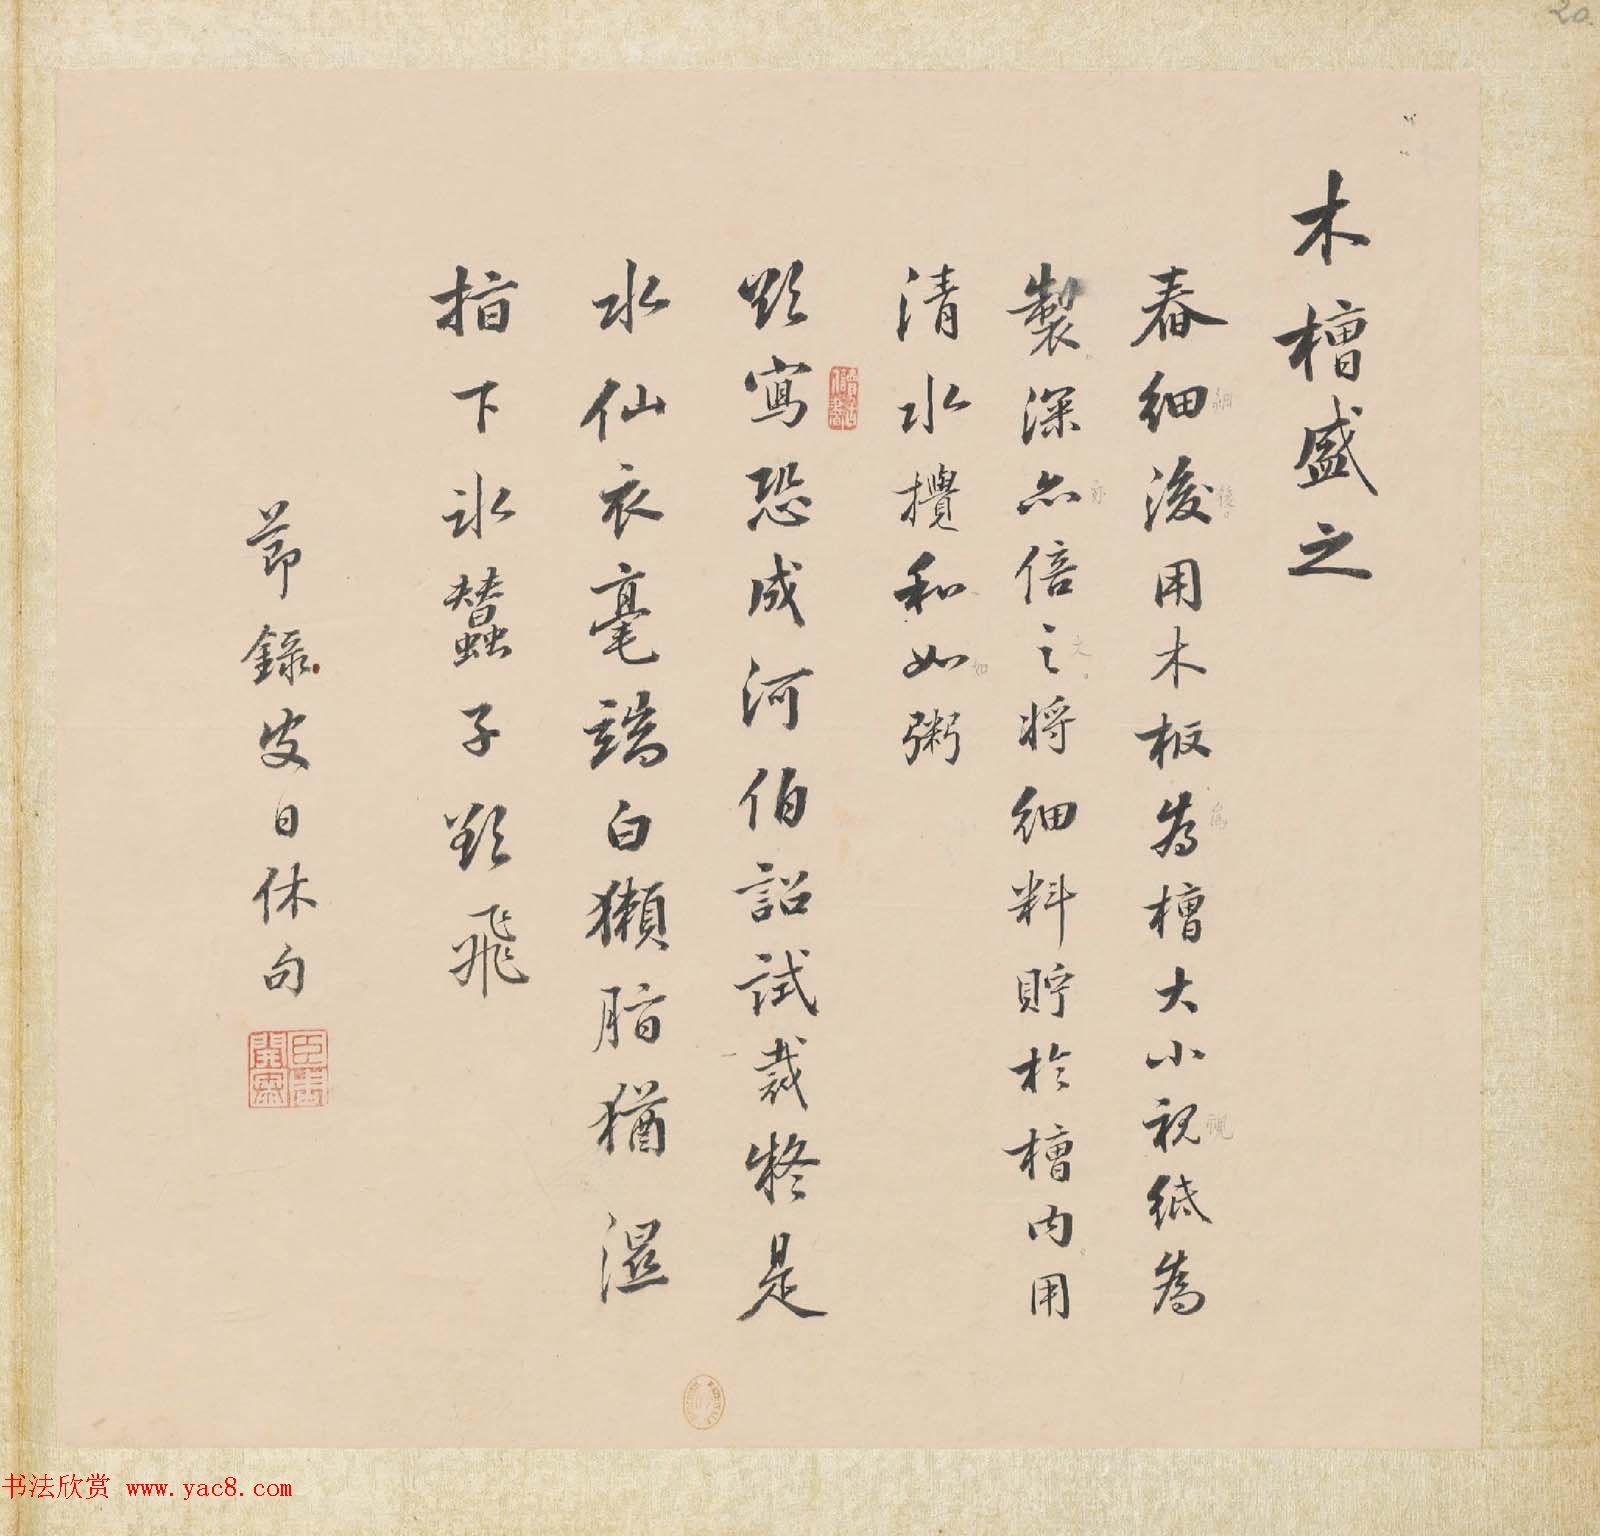 木槽盛之
舂細後用木板為槽大小視紙為
製深亦倍之將細料貯於槽内用
清水攪和如粥
欲寫恐成河伯詔試裁疑是
水仙衣毫端白獺脂猶濕
指下冰蠶子欲飛
節錄皮日休句
細
後
亦
之
如
為
視
20
书法欣赏 www.yac8.com